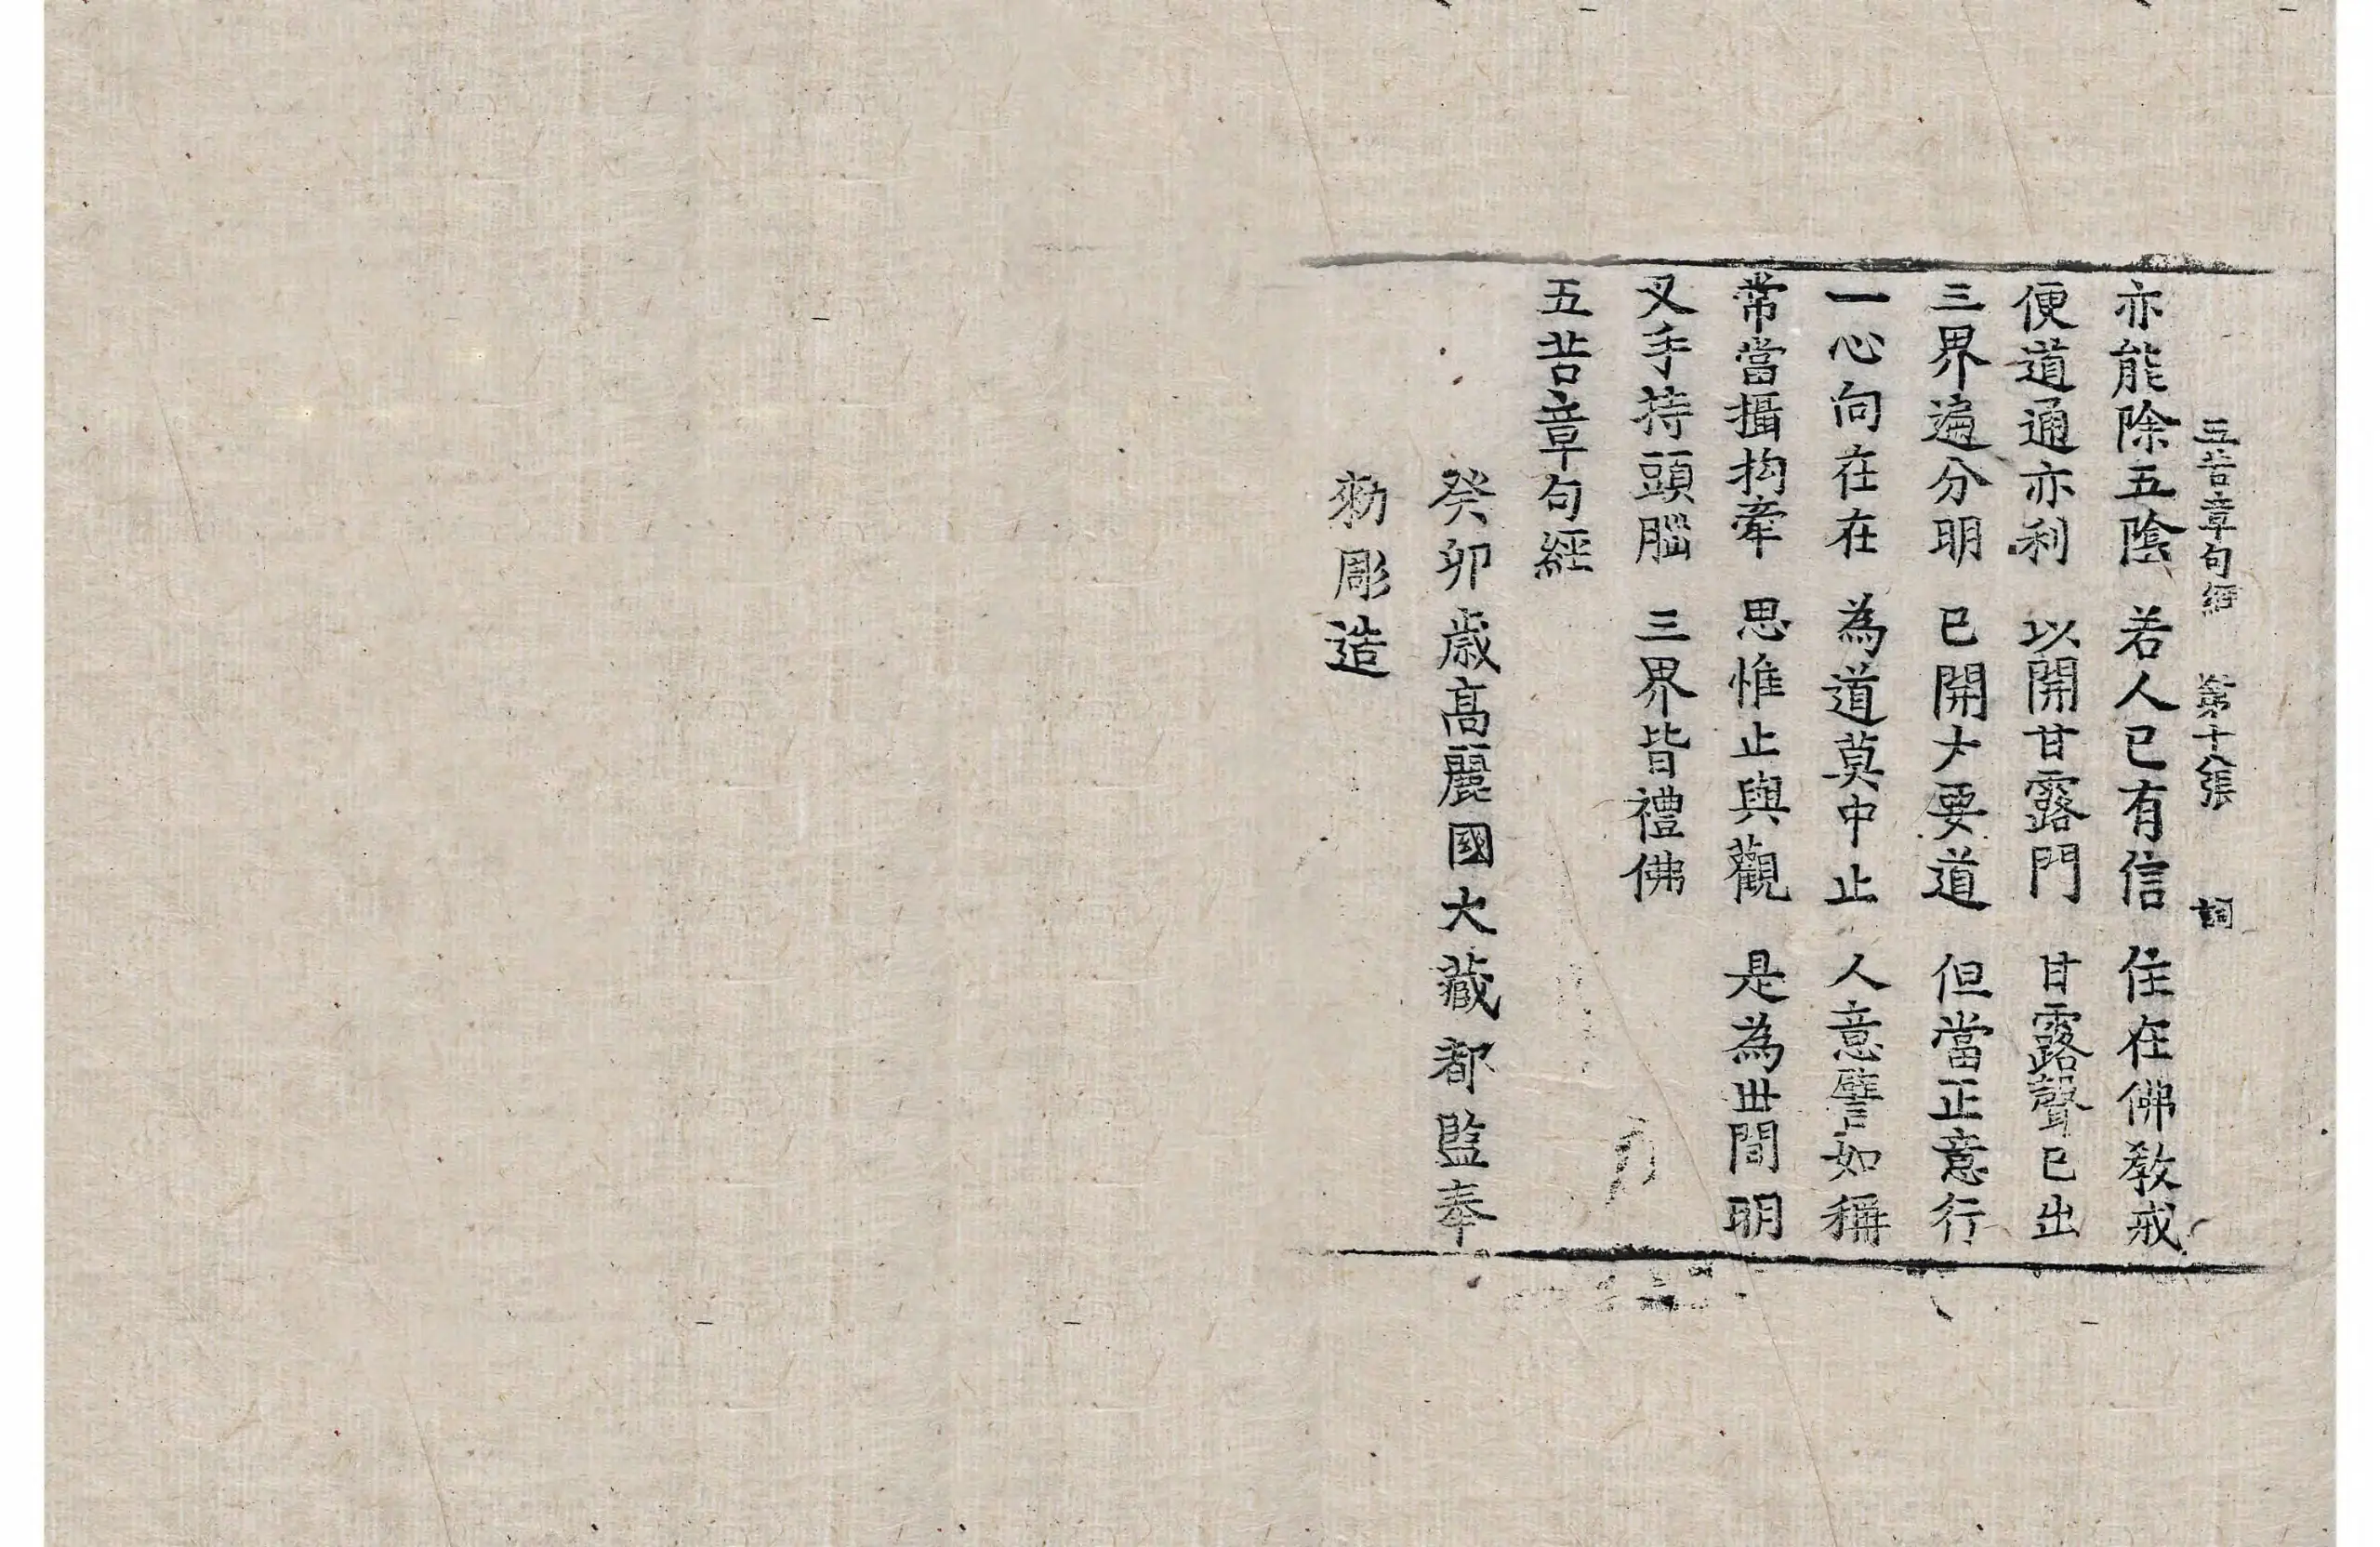 五苦章句経 第十八張 詞
亦能除五陰 若人已有信 住在佛敎戒
便道通亦利 以開甘露門 甘露聲已出
三界遍分明 已開大要道 但當正意行
一心向在在 為道莫中止 人意譬如稱
常當攝拘牽 思惟止與觀 是為世間明
叉手持頭腦 三界皆禮佛
五苦章句經
癸卯歲高麗國大藏都監奉
勑彫造